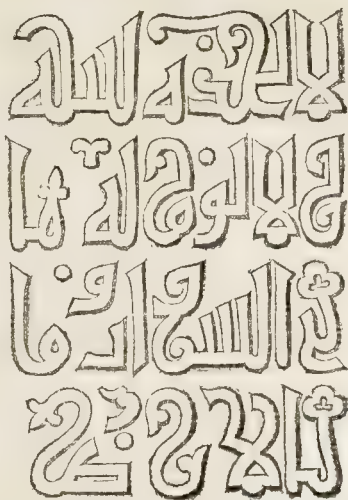 لا تاخذه سنة
و لا نوم له ما
في السموات و ما
في الارض